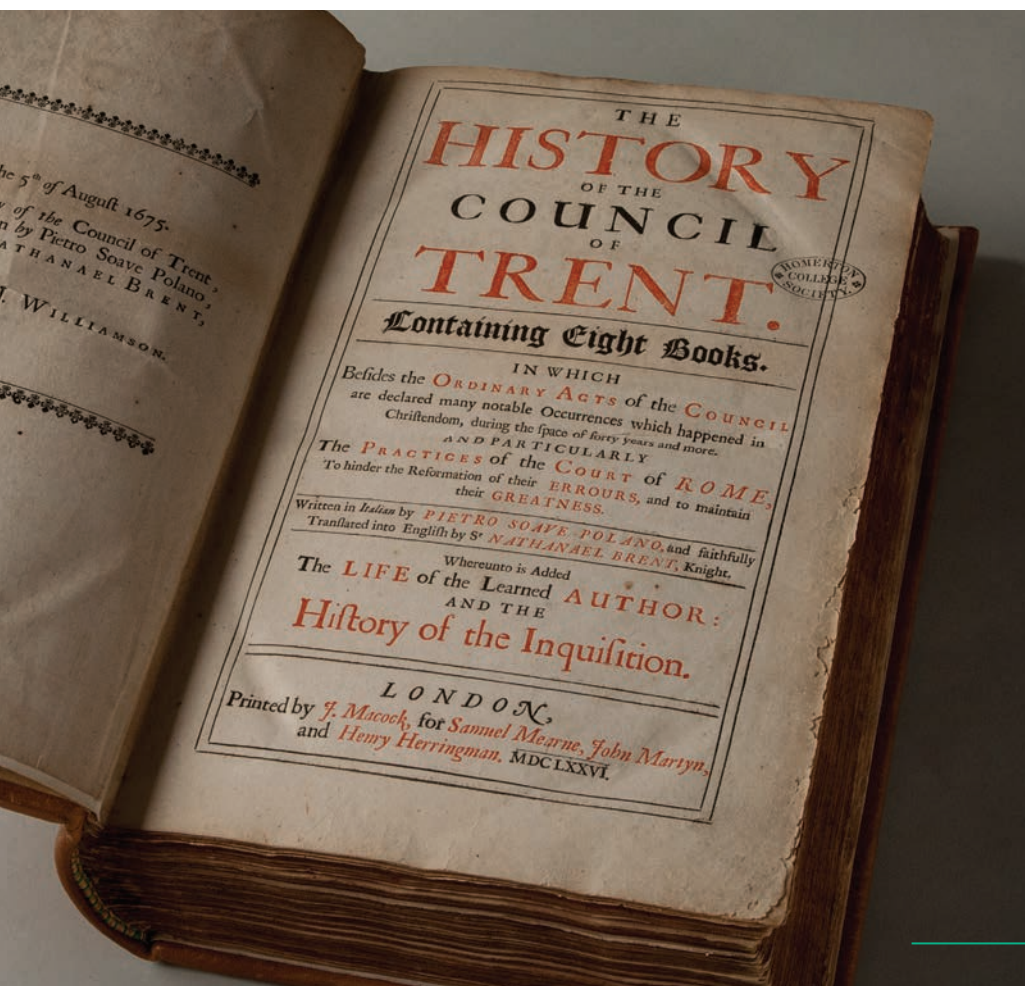 he 5th of Auguſt 1675.
of the Council of Trent,
n by Pietro Soave Polano,
ATHANAEL BRENT,
J. WILLIAMSON.
THE
HISTORY
OF THE
COUNCIL
OF
TRENT.
HOMERTON
COLLEGE
SOCIETY.
Containing Eight Books.
IN WHICH
Beſides the ORDINARY ACTS of the COUNCIL
are declared many notable Occurrences which happened in
Chriſtendom, during the ſpace of forty years and more.
AND PARTICULARLY
The PRACTICES of the COURT of ROME,
To hinder the Reformation of their ERROURS, and to maintain
their GREATNESS.
Written in Italian by PIETRO SOAVE POLANO, and faithfully
Tranſlated into Engliſh by Sr NATHANAEL BRENT, Knight.
Whereunto is Added
The LIFE of the Learned AUTHOR:
AND THE
Hiſtory of the Inquiſition.
LONDON,
Printed by J. Macock, for Samuel Mearne, John Martyn,
and Henry Herringman. MDCLXXVI.